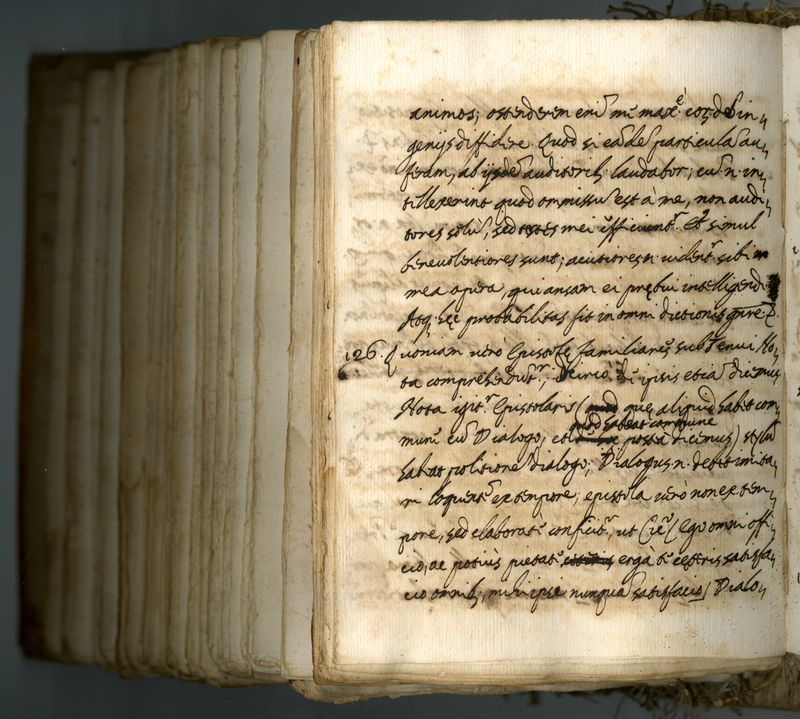 animos; ostenderem eni mi maxè eor de in„
genijs diffidere. Quod si ea de particula au„
feram, ab ijsde auditorib. laudabor; cu n. in„
tillexerint quod ommissu est à me, non audi„
tores solu, sed testes mei efficiunt.r Et simul
benevolentiores sunt; acutiores n. videnr. sibi in
mea opera, qui ansam ei prębui intelligendi.
Atq. hęc probabilitas sit in omni dictionis gnre
126. Quoniam verò Epistolę familiares sub tenui No„
ta comprehendunt.r, de ipsis etia dicemus
Nota igit.r Epistolaris ( quę aliquid habet com„
quod habeat commune
mune cu Dialogo, postea dicemus) stylu
habeat politione dialogo; Dialogus n. debet imita„
ri loquente ex tempore; epistola verò non ex tem„
pore, sed elaborate conficit.r, ut Cic. (Ego omni offi„
cio, ac potiùs pietate ergà te cęteris satisfa„
cio omnib., mihi ipse nunqua satisfacio) Dialo„